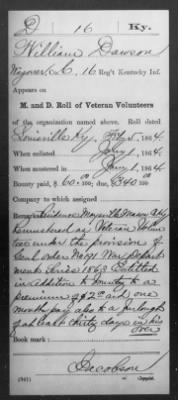 D 16 Ky.
William Dawson
Wagoner, C, 16 Reg't Kentucky Inf.
Appears on
M. and D. Roll of Veteran Volunteers
of the organization named above. Roll dated
Louisville Ky, 5, 186 4.
When enlisted Jany 1, 186 4.
When mustered in Jany 1, 186 4.
Bounty paid, $ 60.00/100; due, $ 340.00/100
Company to which assigned
Maysville Mason Co Ky
remustered as Veteran Volun
teer under the provision of
Genl order No 191 War Depart
ment Series 1863 Entitled
in addition to bounty to a
premium of $2.00 and one
month pay also to a furlough
of at least thirty days in his
over
Book mark:
Jacobson
(341) Copyist.